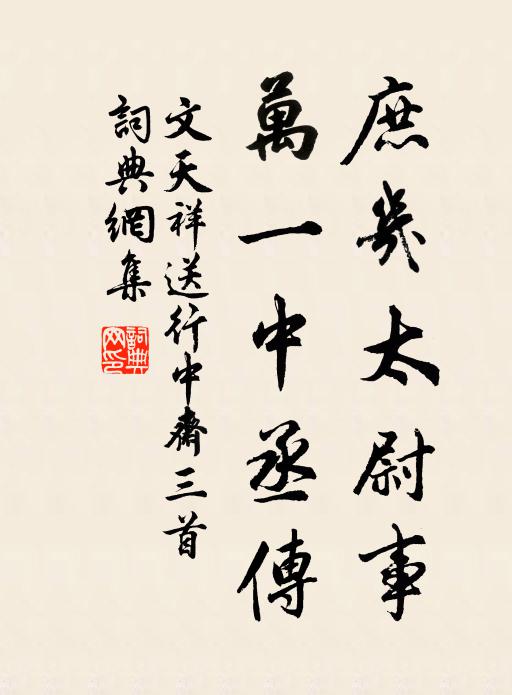 庶幾太尉事
萬一中丞傳
文天祥送行中齋三首
詞典網集
詞典網印